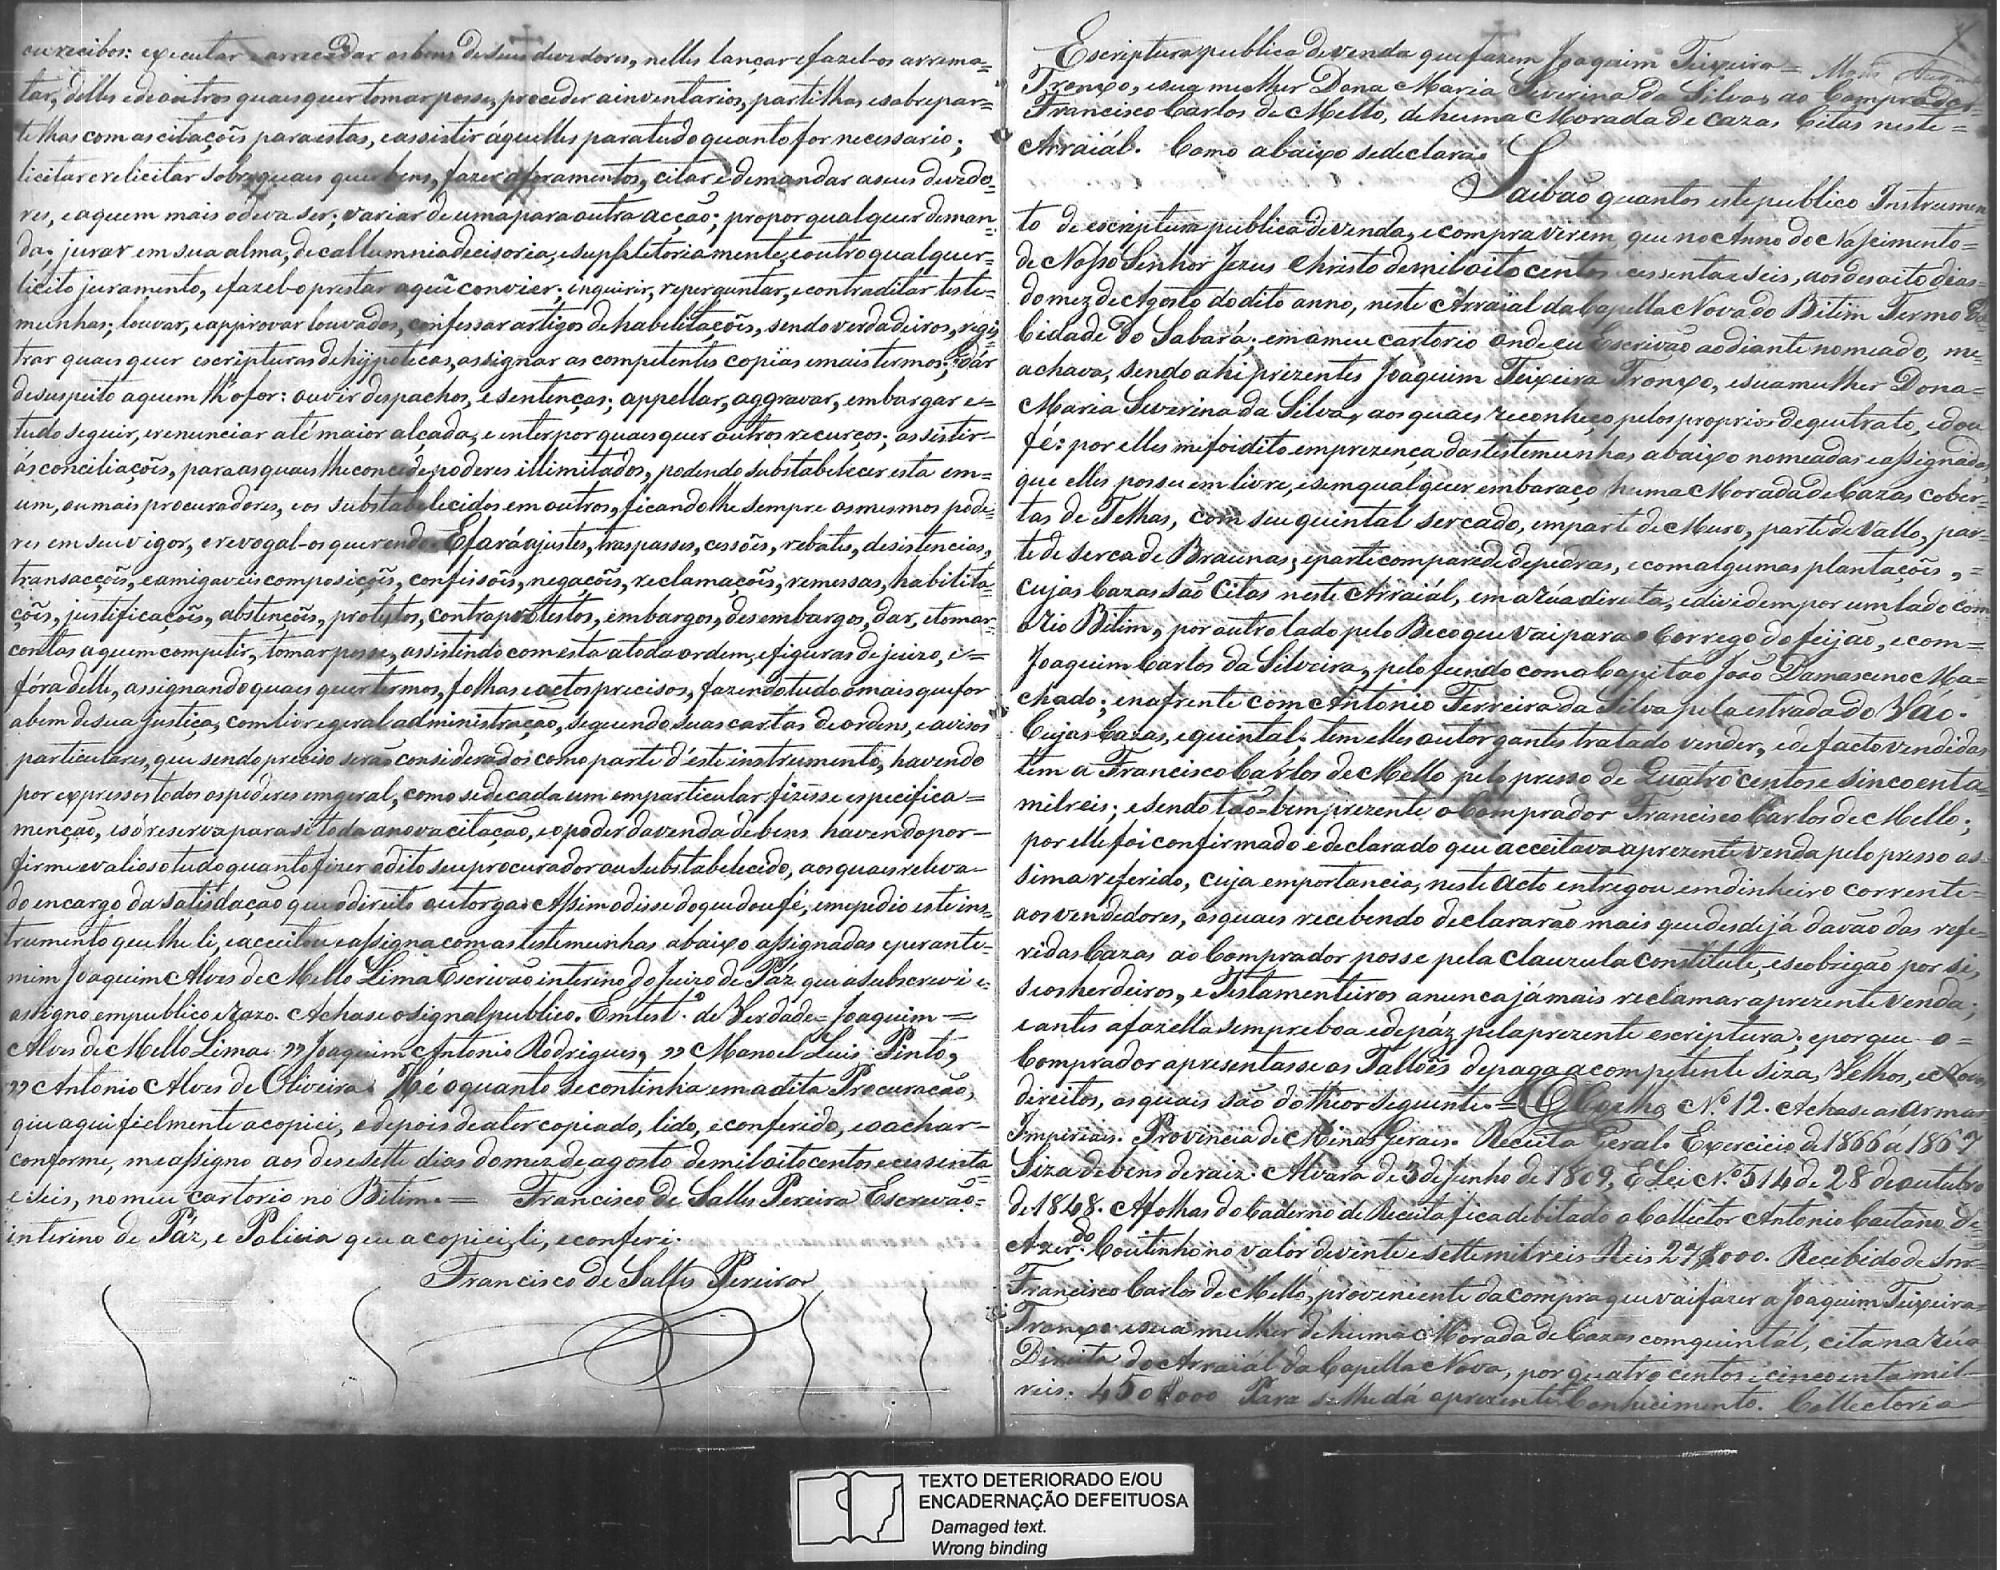 ou recibos: executar e arrecadar os bens de seus devedores, nelles lançar e fazel-os arrema=
tar, delles e de outros quaes quer tomar posse, proceder a inventarios, partilhas e sobrepar=
telhas com as citações para estas, e assistir áquelles para tudo quanto for necessario;
licitar e relicitar sobre quaes quer bens, fazer aforamentos, citar e demandar a seus devedo-
res, e a quem mais o deva ser; variar de uma para outra acção; propor qualquer deman-
da, jurar em sua alma, de callumnia decisoria, e supletoriamente, e outro qualquer-
licito juramento, e fazel-o prestar a quem convier; inquirir, reperguntar, e contraditar teste=
munhas; louvar, e approvar louvados, confessar artigos de habelitações, sendo verdadeiros, regis
trar quaes quer escripturas de hypotecas, assignar as competentes copias e mais termos; dár
de suspeito a quem lh'o for: ouvir despachos, e sentenças; appellar, aggravar, embargar e=
tudo seguir, e renunciar até maior alçada, e interpor quaes quer outros recurços; assistir-
ás conciliações, para as quaes lhe concede poderes illimitados, podendo substabelecer esta em=
um, ou mais procuradores, e os substabelecidos em outros, ficando lhe sempre os mesmos pode-
res em seu vigor, e revogal-os querendo. E fará ajustes, traspasses, cessões, rebates, desistencias,
transacções, e amigaveis composições, confisões, negações, reclamações, remessas, habilita-
ções, justificações, abstenções, protestos, contraprotestos, embargos, desembargos, dar, e tomar-
contas a quem competir, tomar posse, assistindo com esta a toda ordem, e figuras de juizo, e=
fóra delle, assignando quaes quer termos, folhas e actos precisos, fazendo tudo o mais que for
a bem de sua justiça, com livre geral administração, seguendo suas cartas de ordens, e avisos
particulares, que sendo preciso serão considerados como parte d'este instrumento, havendo
por expressos todos os poderes em geral, como se de cada um em particular fizesse especifica=
menção, e só reserva para si toda a nova citação, e o poder da venda de bens havendo por-
firme e valioso tudo quanto fizer o dito seu procurador ou substabelecido, aos quaes releva-
do encargo da satisdação que o direito outorga. Assim o disse do que dou fé, e me pedio este ins-
trumento que lhe li, e acceitou e assigna com as testemunhas abaixo assignadas e perante-
mim Joaquim Alves de Mello Lima Escrivão interino do Juizo de Páz que a subscrevi e-
assigno em publico e razo. Achase o signal publico. Em test.º de Verdade= Joaquim=
Alves de Mello Lima. " Joaquim Antonio Rodrigues, " Manoel Luis Pinto,
" Antonio Alves de Oliveira. Hé o quanto se continha em a dita Procuração,
que aqui fielmente a copiei, e depois de a ter copiado, lido, e conferido, e o achar-
conforme, me assigno aos desesette dias do mez de agosto de mil oitocentos e cessenta
e seis, no meu cartorio no Bitim.= Francisco de Salles Pereira Escrevão=
interino de Páz, e Policia que a copiei, li, e conferi.
Francisco de Salles Pereira
Escriptura publica de venda que fazem Joaquim Teixeira=
Tronxo, e sua mulher Dona Maria Severina da Silva, ao Comprador
Francisco Carlos de Mello, de huma Morada de cazas Citas neste=
Arraiál. Como abaixo se declara.
Saibão quantos este publico Instrumen
to de escriptura publica de venda, e compra virem, que no Anno do Nascimento=
de Nosso Senhor Jezus Christo de mil oito centos e cessenta e seis, aos desoito dias
do mez de Agosto do dito anno, neste Arraiál da Capella Nova do Bitim Termo da
Cidade do Sabará; em a meu cartorio onde eu Escrivão ao diante nomeado, me=
achava, sendo ahi prezentes Joaquim Teixeira Tronxo, e sua mulher Dona=
Maria Severina da Silva, aos quaes reconheço pelos proprios de que trato, e dou
fé: por elles me foi dito em prezença das testemunhas abaixo nomeadas e assignadas,
que elles possuem livre, e sem qualquer embaraço huma Morada de Cazas cober-
tas de Telhas, com seu quintal sercado, em parte de Muro, parte de Vallo, par=
te de serca de Braunas, e parte com parede de pedras, e com algumas plantações,=
cujas Cazas são Citas neste Arraiál, em a rúa direita, e dividem por um lado com
o rio Bitim, por outro lado pelo Beco que vai para o Corrego do feijão, e com=
Joaquim Carlos da Silveira, pelo fundo com o Capitão João Damasceno Ma=
chado; e na frente com Antonio Ferreira da Silva pela estrada do Váo.
Cujas Cazas, e quintal, tem elles outorgantes tratado vender, e de facto vendidas
tem a Francisco Carlos de Mello pelo presso de Quatro centos e sincoenta=
mil reis; e sendo tão-bem prezente o Comprador Francisco Carlos de Mello;
por elle foi confirmado e declarado que acceitava a prezente venda pelo presso as-
sima referido, cuja emportancia, neste acto entregou em dinheiro corrente-
aos vendedores, os quaes recebendo declararão mais que desde já davão das refe-
ridas Cazas ao Comprador posse pela clauzula constitute, e se obrigão por si,
seos herdeiros, e Testamenteiros a nunca já mais reclamar a prezente venda;
e antes a fazella sempre boa e de páz pela prezente escriptura; e por que o=
Comprador apresentasse os Tallões de paga a competente siza, Velhos, e Novos
direitos, os quaes são do theor seguinte.= Coelho Nº 12. Achase as Armas
Imperiais. Provincia de Minas Gerais. Receita Geral. Exercicio de 1866 á 1867
Siza de bens de raiz. Alvará de 3 de Junho de 1809, E Lei Nº 514 de 28 de outubro
de 1848. A folhas do Caderno de Receita fica debitado o Collector Antonio Caetano de
Azer.do Coutinho no valor de vinte e sette mil reis Reis 27$000. Recebido de Snr=
Francisco Carlos de Mello, proveniente da compra que vai fazer a Joaquim Teixeira=
Tronxo e sua mulher de huma Morada de Cazas com quintal, cita na rúa
Direita do Arraiál da Capella Nova, por quatro centos e cincoenta mil-
reis: 450$000 Para se lhe dá a prezente Conhecimento. Collectoria
TEXTO DETERIORADO E/OU
ENCADERNAÇÃO DEFEITUOSA
Damaged text.
Wrong binding